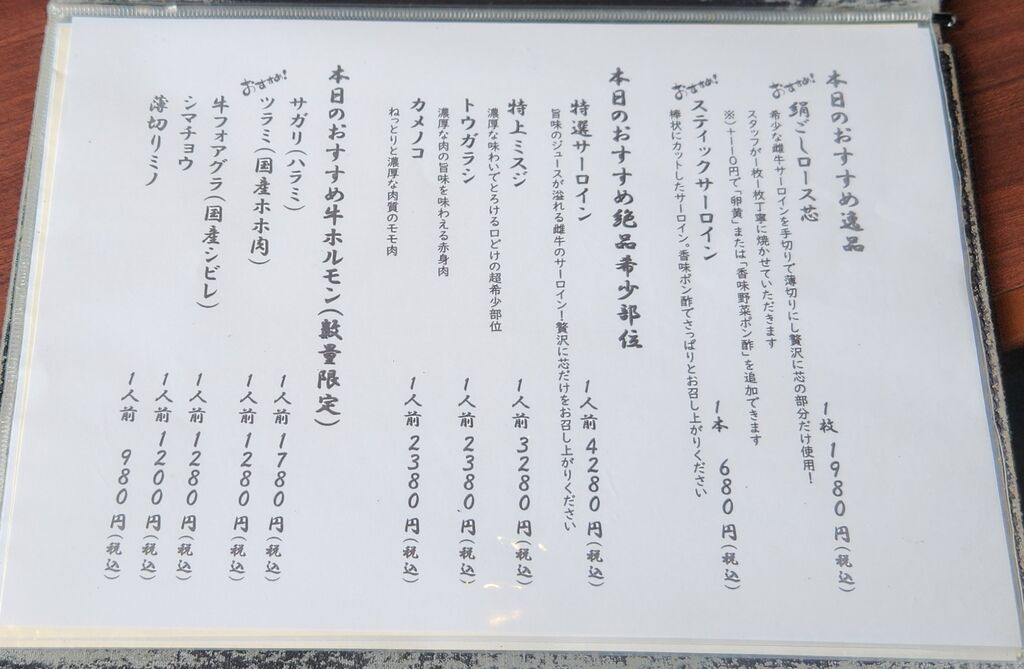 本日のおすすめ逸品
おすすめ！
絹ごしロース芯
1枚 1980円(税込)
希少な雌牛サーロインを手切りで薄切りにし贅沢に芯の部分だけ使用！
スタッフが一枚一枚丁寧に焼かせていただきます
※)＋110円で「卵黄」または「香味野菜ポン酢」を追加できます
おすすめ！
スティックサーロイン
1本 680円(税込)
棒状にカットしたサーロイン。香味ポン酢でさっぱりとお召し上がりください
本日のおすすめ絶品希少部位
特選サーロイン
1人前 4280円(税込)
旨味のジュースが溢れる雌牛のサーロイン！贅沢に芯だけをお召し上がりください
特上ミスジ
1人前 3280円(税込)
濃厚な味わいでとろける口どけの超希少部位
トウガラシ
1人前 2380円(税込)
濃厚な肉の旨味を味わえる赤身肉
カメノコ
1人前 2380円(税込)
ねっとりと濃厚な肉質のモモ肉
本日のおすすめ牛ホルモン(数量限定)
サガリ(ハラミ)
1人前 1780円(税込)
おすすめ！
ツラミ(国産ホホ肉)
1人前 1280円(税込)
牛フォアグラ(国産シビレ)
1人前 1280円(税込)
シマチョウ
1人前 1200円(税込)
薄切りミノ
1人前 980円(税込)